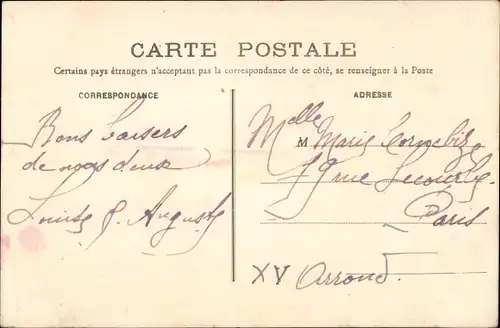 CARTE POSTALE
Certains pays étrangers n'acceptant pas la correspondance de ce côté, se renseigner à la Poste
CORRESPONDANCE
Bons baisers
de nous deux
Louise & Auguste
ADRESSE
M Melle Marie
19 rue Lecourbe
Paris
XV Arrond.